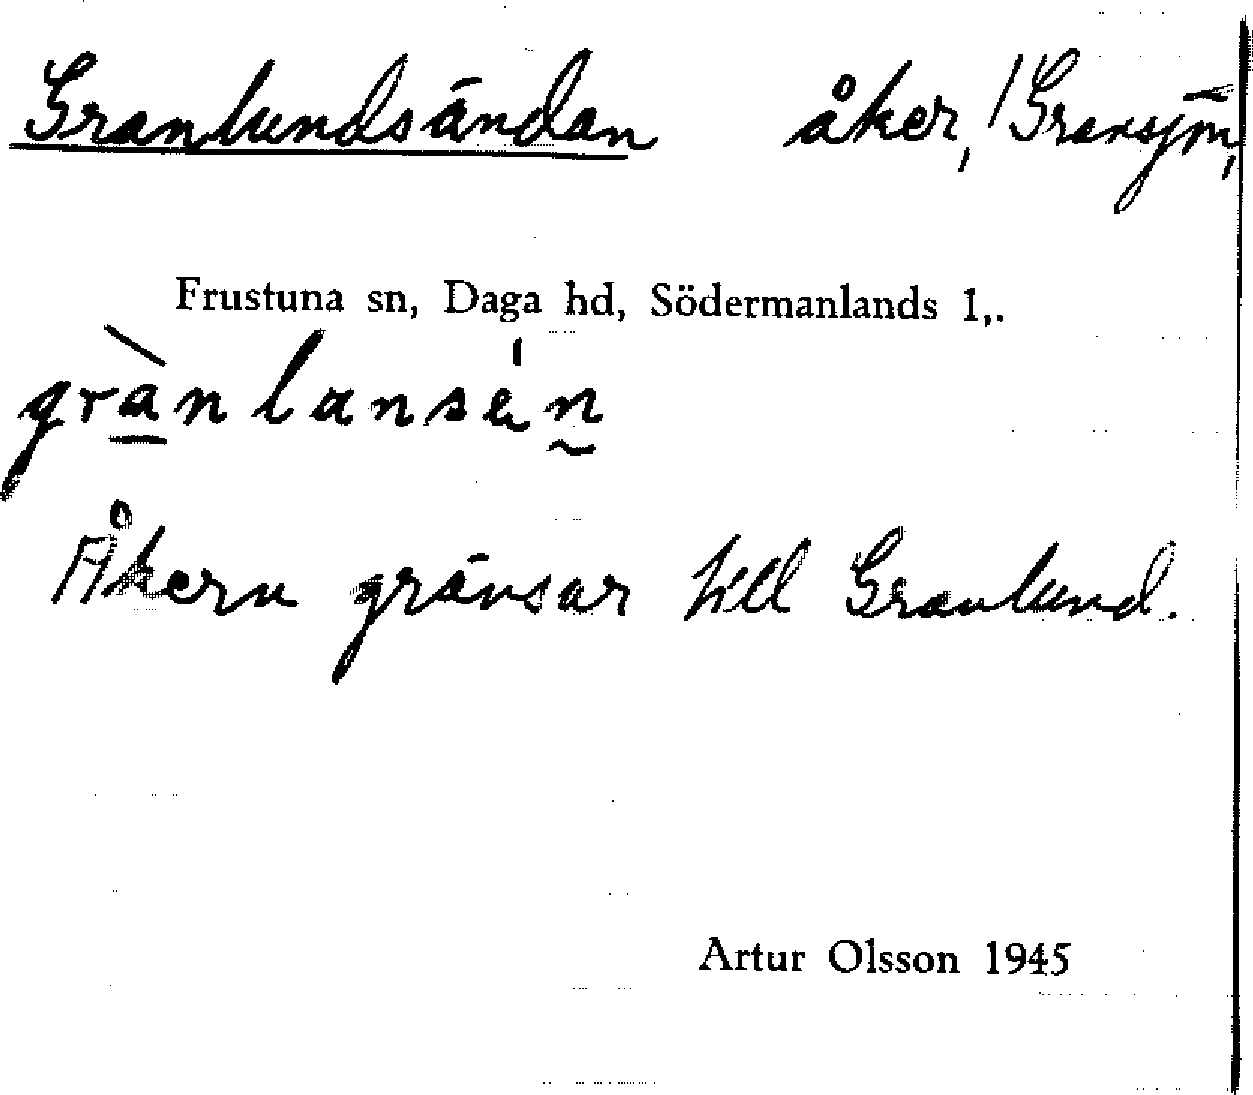 Granlundsändan åker, /Gransjön,
Frustuna sn, Daga hd, Södermanlands l,.
grànlansén
Åkern gränsar till Granlund.
Artur Olsson 1945